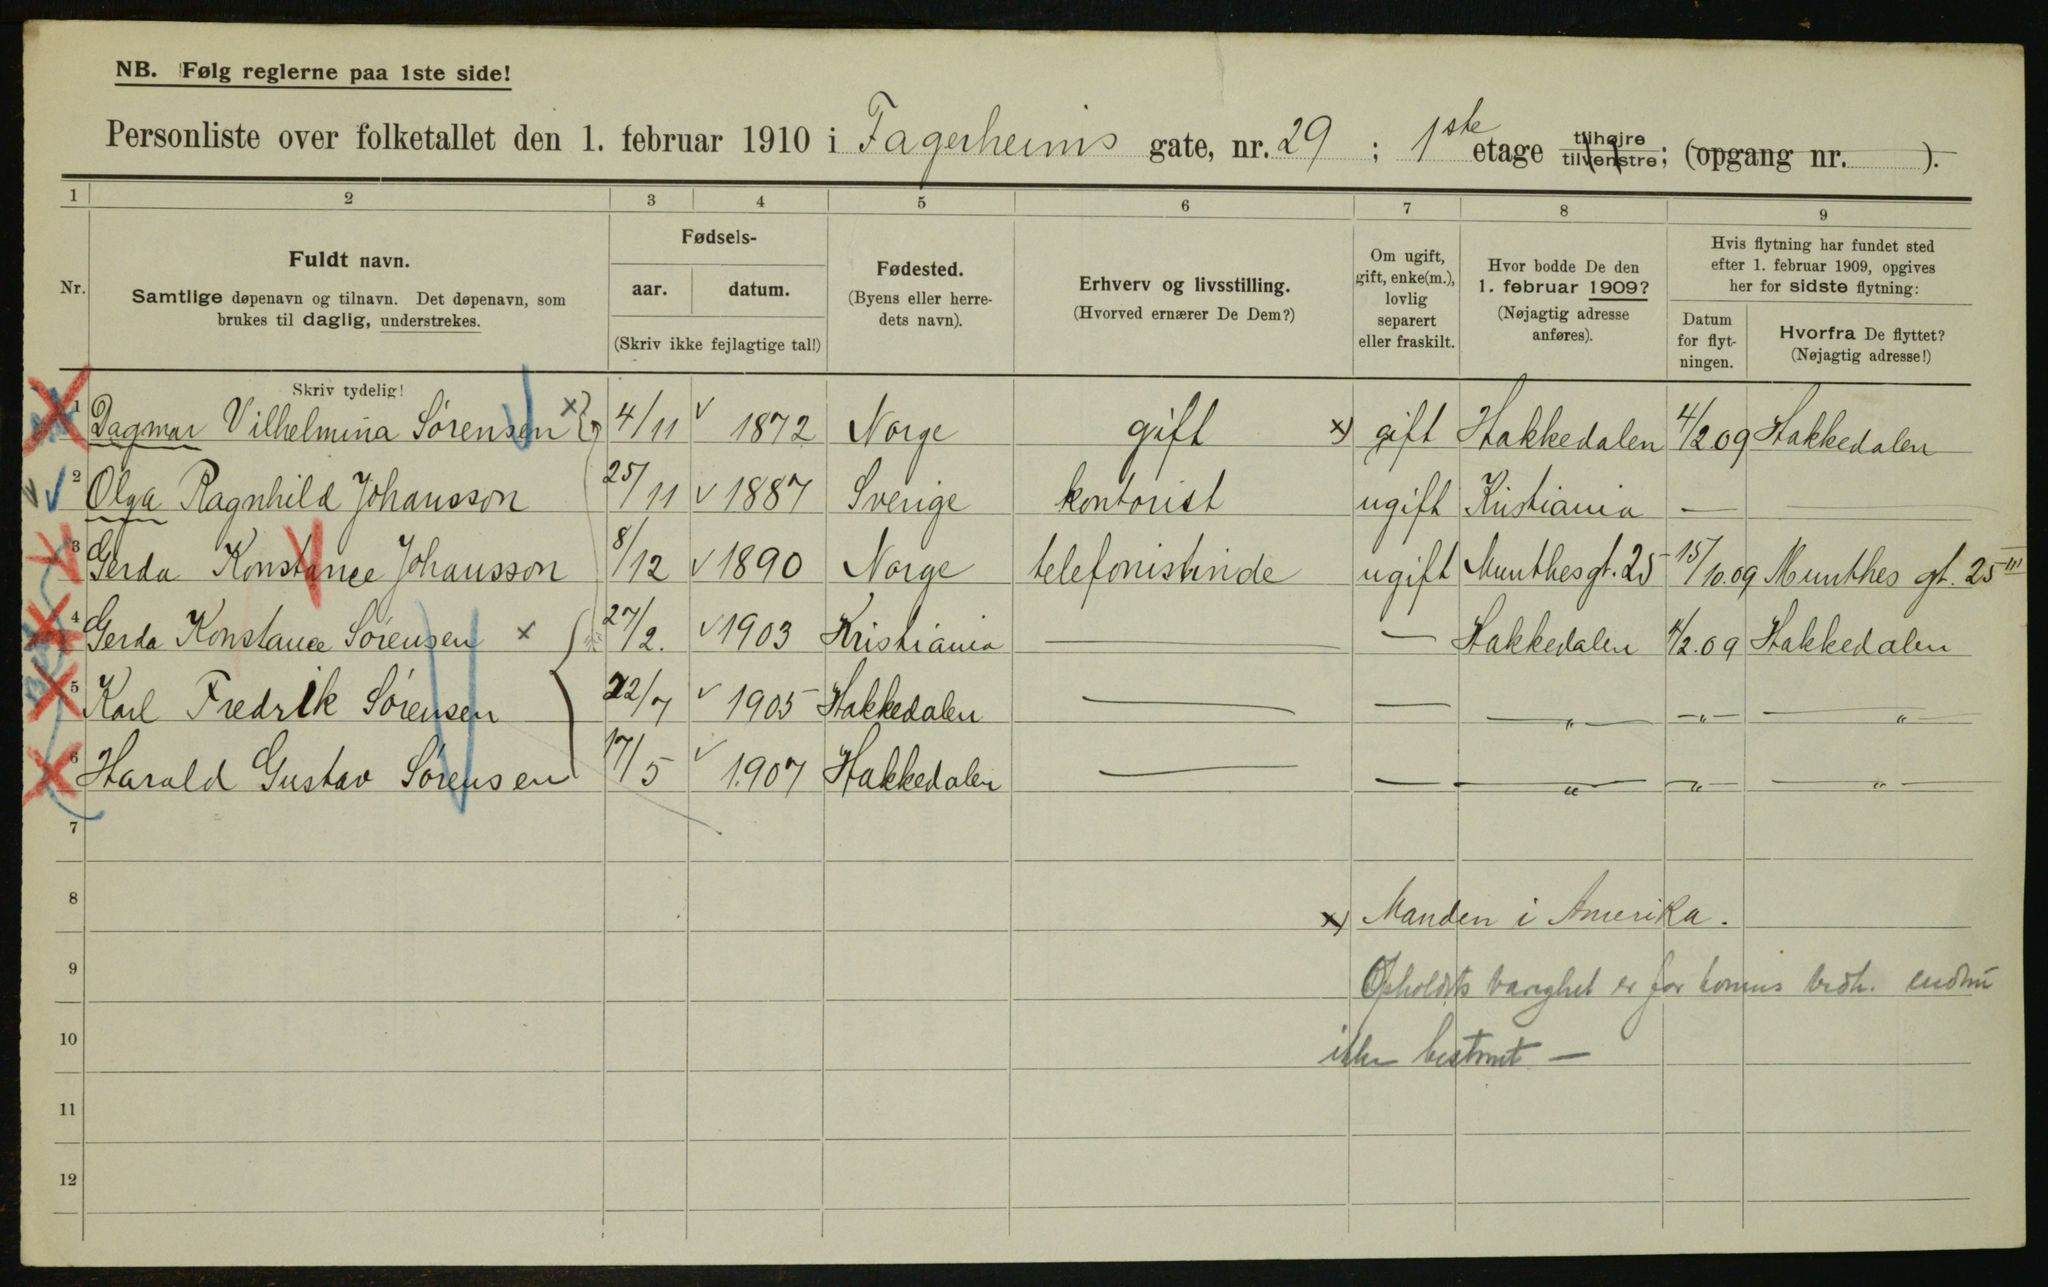 NB. Følg reglerne paa 1ste side!
Personliste over folketallet den 1. februar 1910 i Fagerheims gate, nr. 29 ; 1ste etage tilhøjre tilvenstre; (opgang nr. ).
1 2 3 4 5 6 7 8 9
Nr.
Fuldt navn.
Samtlige døpenavn og tilnavn. Det døpenavn, som
brukes til daglig, understrekes.
Skriv tydelig!
Fødsels-
aar. datum.
(Skriv ikke fejlagtige tal!)
Fødested.
(Byens eller herre-
dets navn).
Erhverv og livsstilling.
(Hvorved ernærer De Dem?)
Om ugift,
gift, enke(m.),
lovlig
separert
eller fraskilt.
Hvor bodde De den
1. februar 1909?
(Nøjagtig adresse
anføres).
Hvis flytning har fundet sted
efter 1. februar 1909, opgives
her for sidste flytning:
Datum
for flyt-
ningen.
Hvorfra De flyttet?
(Nøjagtig adresse!)
1 Dagmar Vilhelmina Sørensen x 4/11 1872 Norge gift x) gift Hakkedalen 4/2.09 Hakkedalen
2 Olga Ragnhild Johansson 25/11 1887 Sverige kontorist ugift Kristiania —
3 Gerda Konstance Johansson 8/12 1890 Norge telefonistinde ugift Munthesgt. 25 15/10.09 Munthes gt. 25 III
4 Gerda Konstance Sørensen x 27/2. 1903 Kristiania — — Hakkedalen 4/2.09 Hakkedalen
5 Karl Fredrik Sørensen 22/7 1905 Hakkedalen — — — " — — " — — " —
6 Harald Gustav Sørensen 17/5 1907 Hakkedalen — — — " — — " — — " —
7
8 x) Manden i Amerika.
9 Opholdets varighet er for vedk. endnu
10 ikke bestemt —
11
12